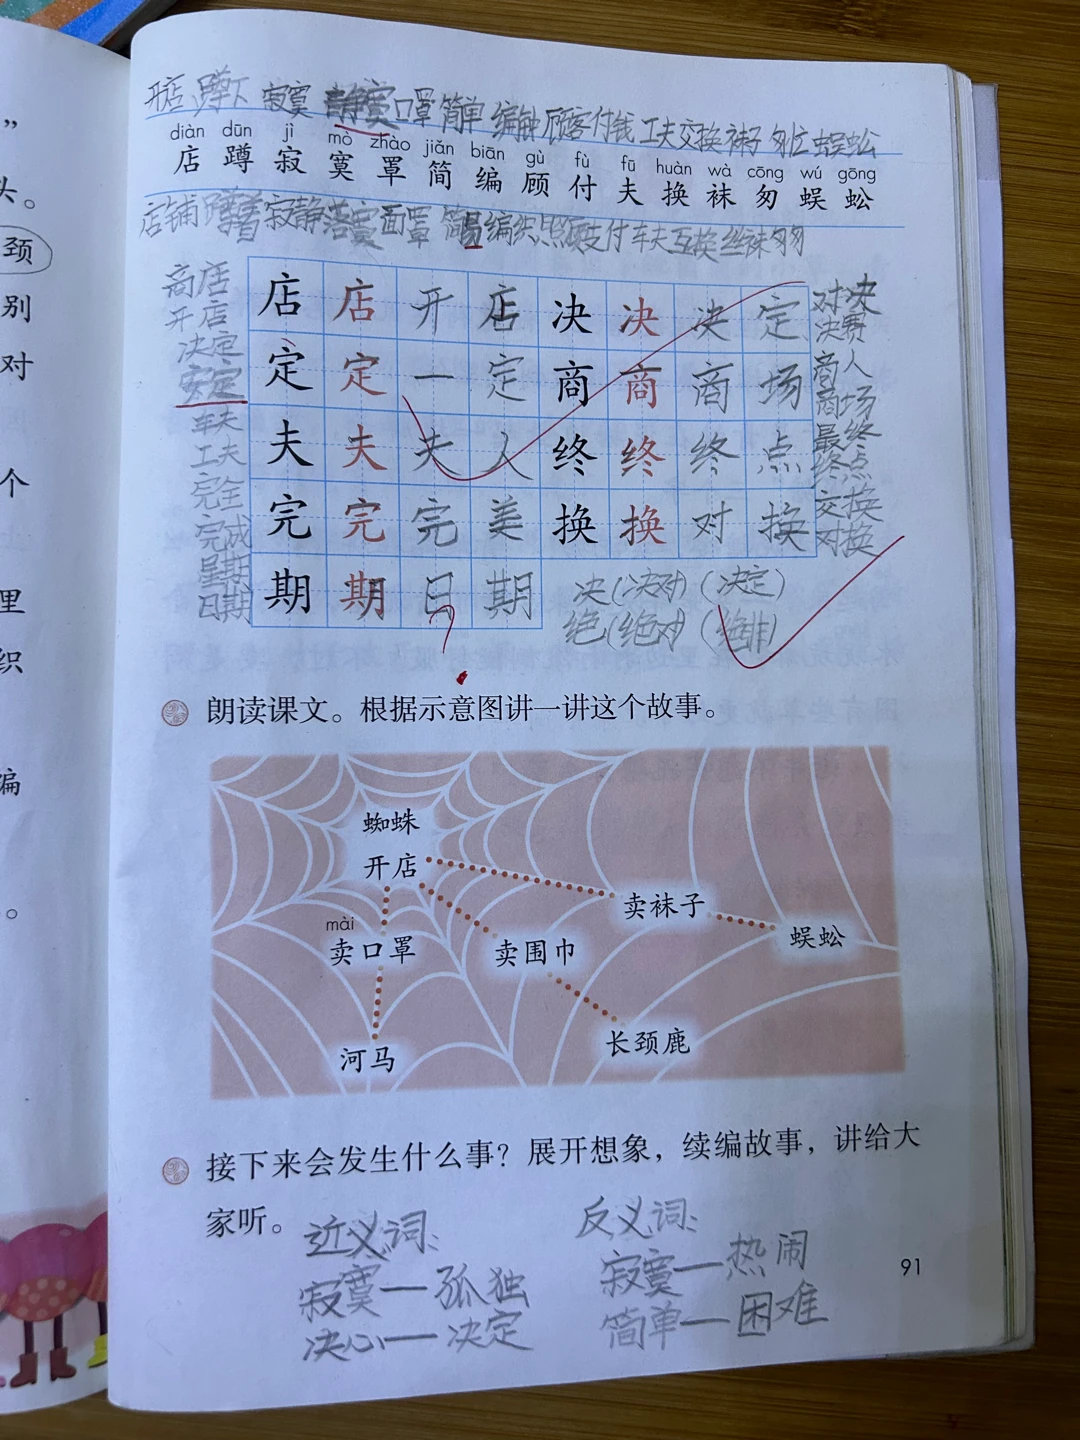 ”
头。
颈
别
对
个
里
织
编
。
开店 蹲下 寂寞 口罩 简单 编钟 顾客 付钱 工夫 交换 袜子 匆忙 蜈蚣
diàn dūn jì mò zhào jiǎn biān gù fù fū huàn wà cōng wú gōng
店 蹲 寂 寞 罩 简 编 顾 付 夫 换 袜 匆 蜈 蚣
店铺 蹲着 寂静 落寞 面罩 简易 编织 照顾 支付 车夫 互换 丝袜 匆匆
商店
开店
决定
安定
车夫
工夫
完全
完成
星期
日期
店 店 开 店 决 决 决 定
定 定 一 定 商 商 商 场
夫 夫 夫 人 终 终 终 点
完 完 完 美 换 换 对 换
期 期 日 期
对决
决赛
商人
商场
最终
终点
交换
对换
决(决对)(决定)
绝(绝对)(绝非)
?
朗读课文。根据示意图讲一讲这个故事。
蜘蛛
开店
卖袜子
蜈蚣
mài
卖口罩
卖围巾
河马
长颈鹿
接下来会发生什么事？展开想象，续编故事，讲给大
家听。
近义词:
寂寞—孤独
决心—决定
反义词:
寂寞—热闹
简单—困难
91